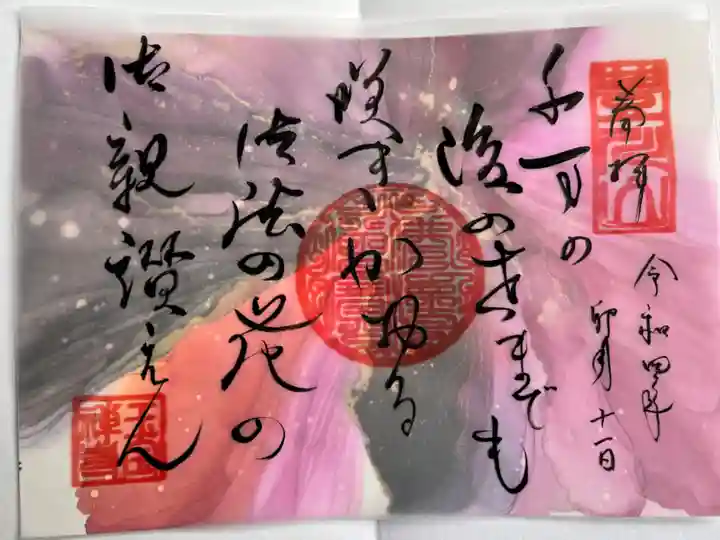 奉拝
令和四年
卯月十一日
千百の
後の世までも
咲きかほる
御法の花の
御親讃えん